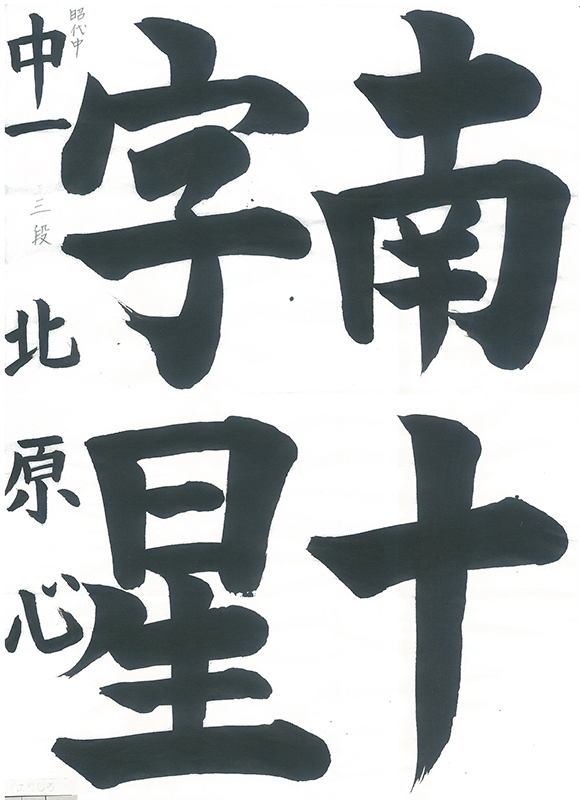 南十
字星
昭代中
三段
中一 北原心